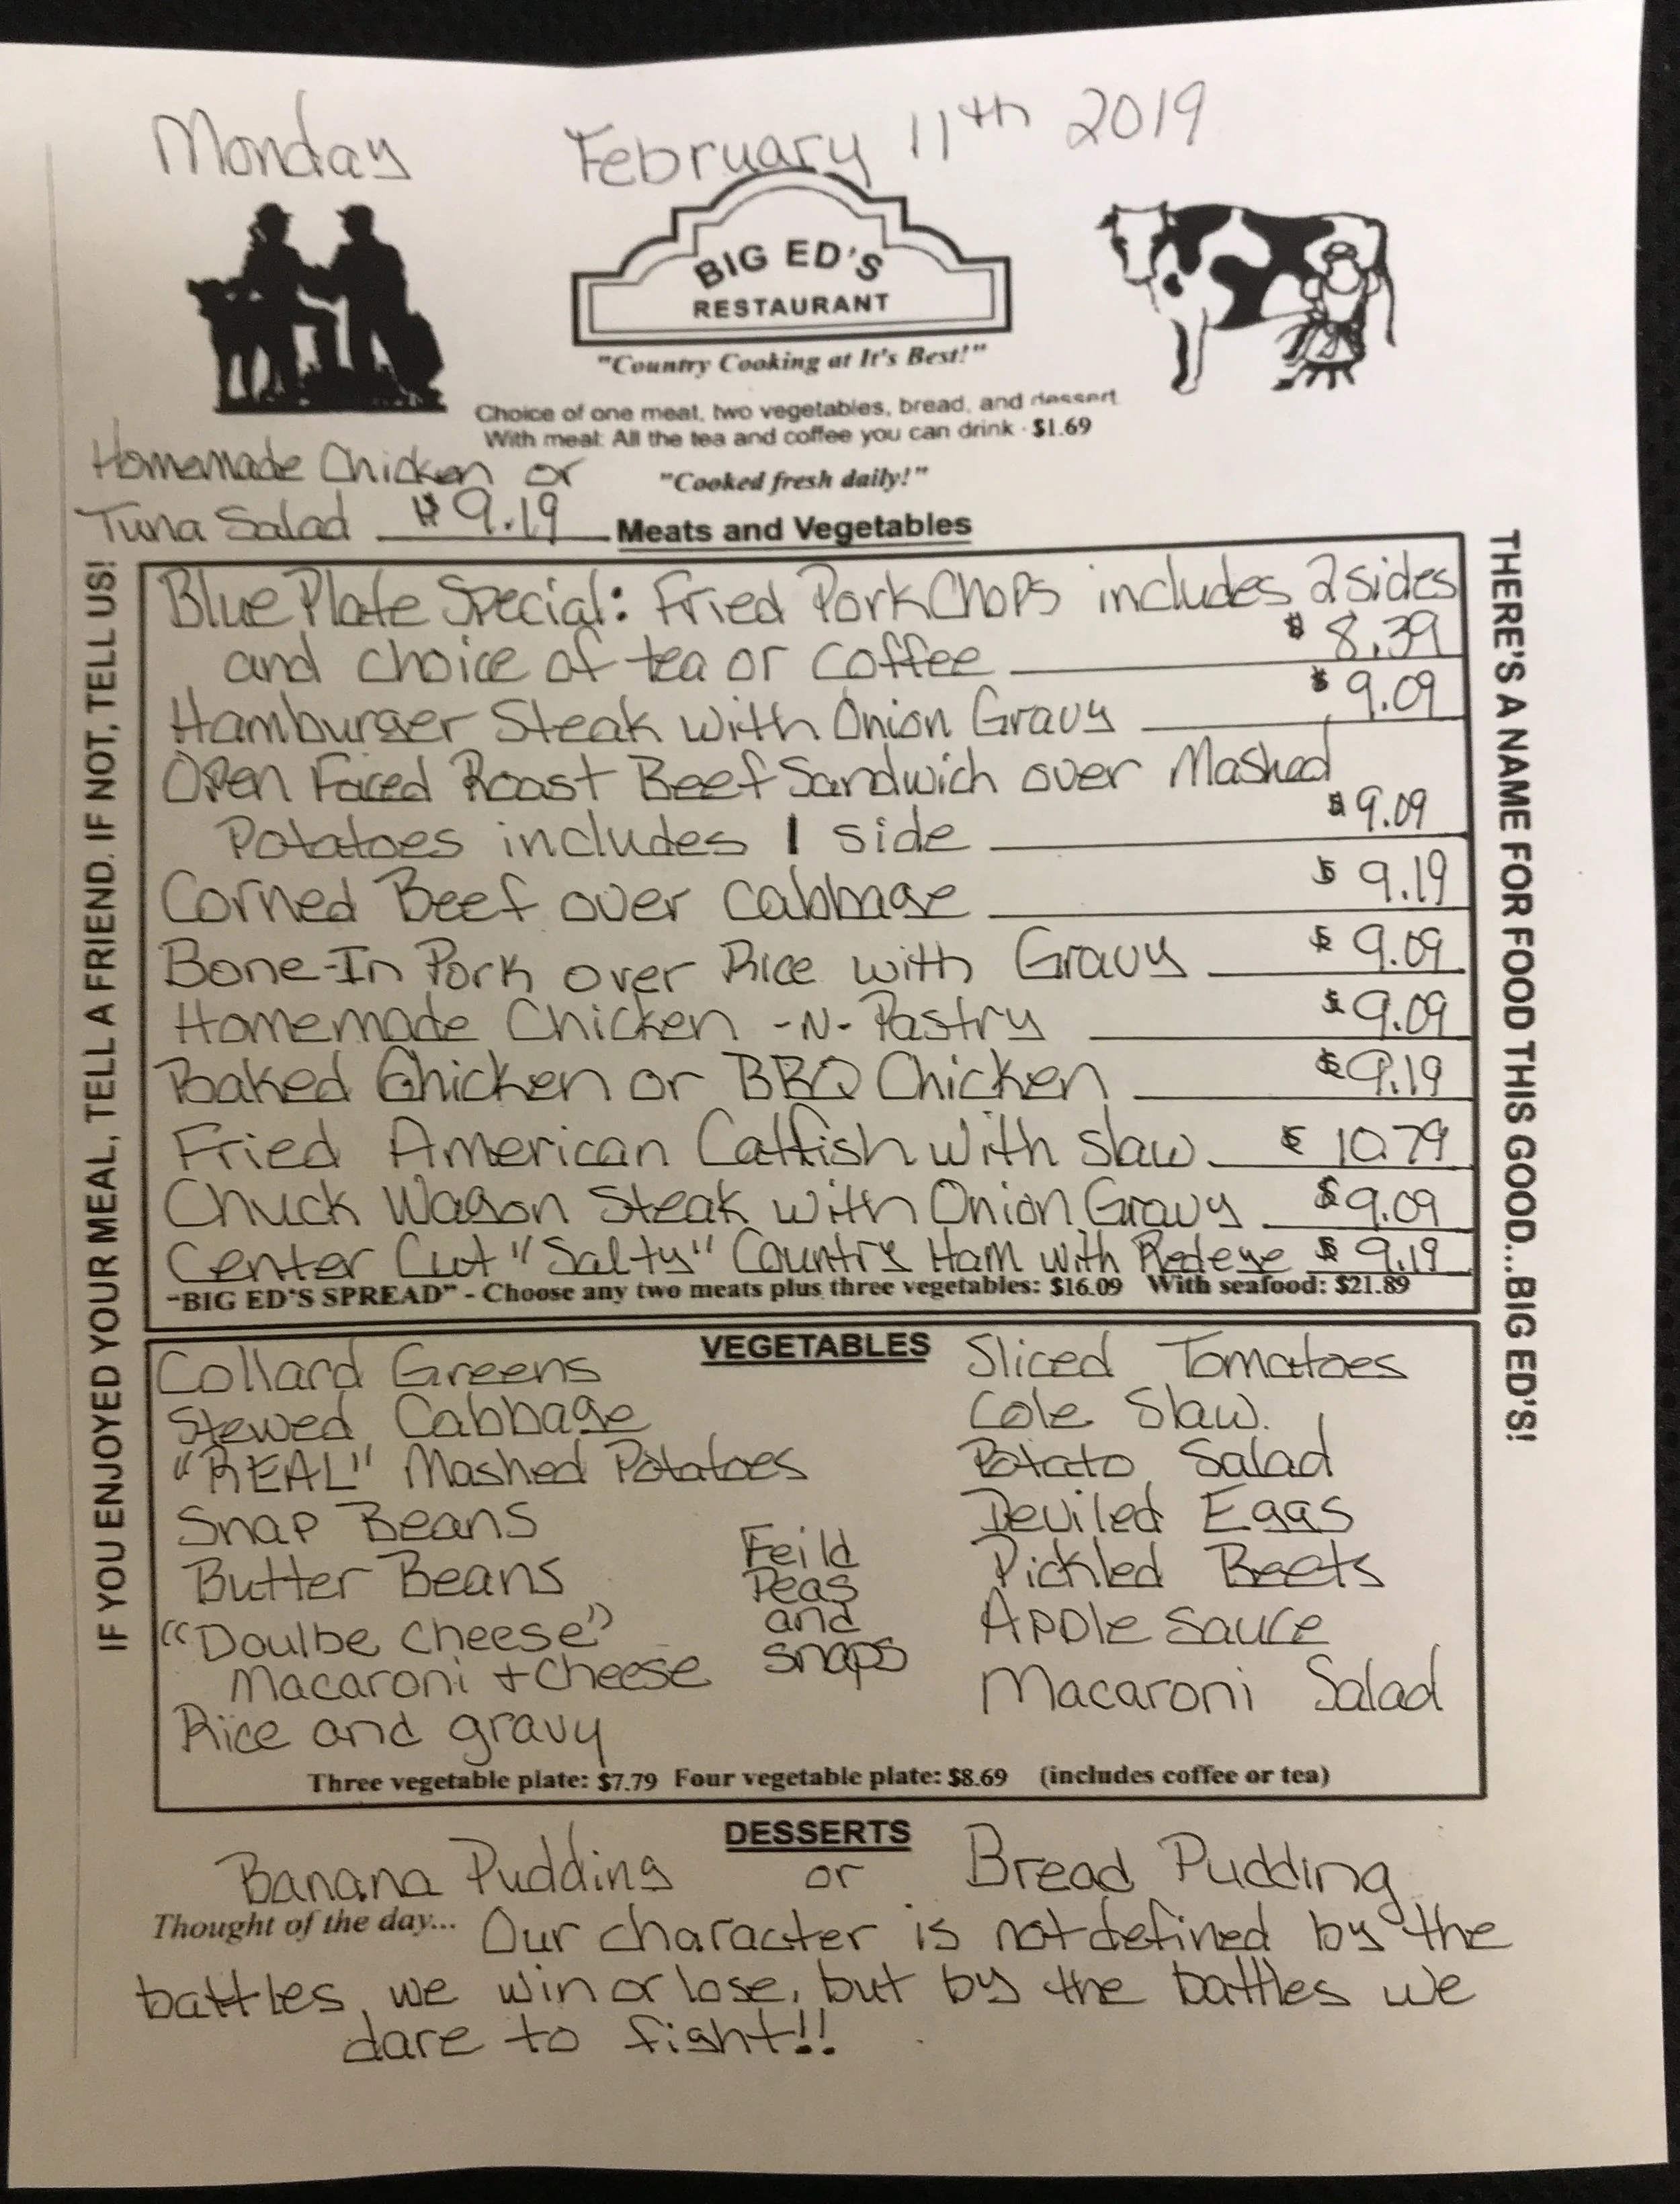 Monday February 11th 2019
BIG ED'S
RESTAURANT
"Country Cooking at It's Best!"
Choice of one meat, two vegetables, bread, and dessert
With meal: All the tea and coffee you can drink · $1.69
"Cooked fresh daily!"
Homemade Chicken or
Tuna Salad $9.19
Meats and Vegetables
Blue Plate Special: Fried Pork Chops includes 2 sides
and choice of tea or coffee $8.39
Hamburger Steak with Onion Gravy $9.09
Open Faced Roast Beef Sandwich over Mashed
Potatoes includes 1 side $9.09
Corned Beef over cabbage $9.19
Bone-In Pork over Rice with Gravy $9.09
Homemade Chicken -N- Pastry $9.09
Baked Chicken or BBQ Chicken $9.19
Fried American Catfish with slaw $10.79
Chuck Wagon Steak with Onion Gravy $9.09
Center Cut "Salty" Country Ham with Redeye $9.19
"BIG ED'S SPREAD" - Choose any two meats plus three vegetables: $16.09 With seafood: $21.89
VEGETABLES
Collard Greens
Stewed Cabbage
"REAL" Mashed Potatoes
Snap Beans
Butter Beans
"Doulbe Cheese"
Macaroni + Cheese
Rice and gravy
Feild
Peas
and
snaps
Sliced Tomatoes
Cole Slaw.
Potato Salad
Deviled Eggs
Pickled Beets
Apple sauce
Macaroni Salad
Three vegetable plate: $7.79 Four vegetable plate: $8.69 (includes coffee or tea)
DESSERTS
Banana Pudding or Bread Pudding
Thought of the day... Our character is not defined by the
battles we win or lose, but by the battles we
dare to fight!!
IF YOU ENJOYED YOUR MEAL, TELL A FRIEND. IF NOT, TELL US!
THERE'S A NAME FOR FOOD THIS GOOD...BIG ED'S!